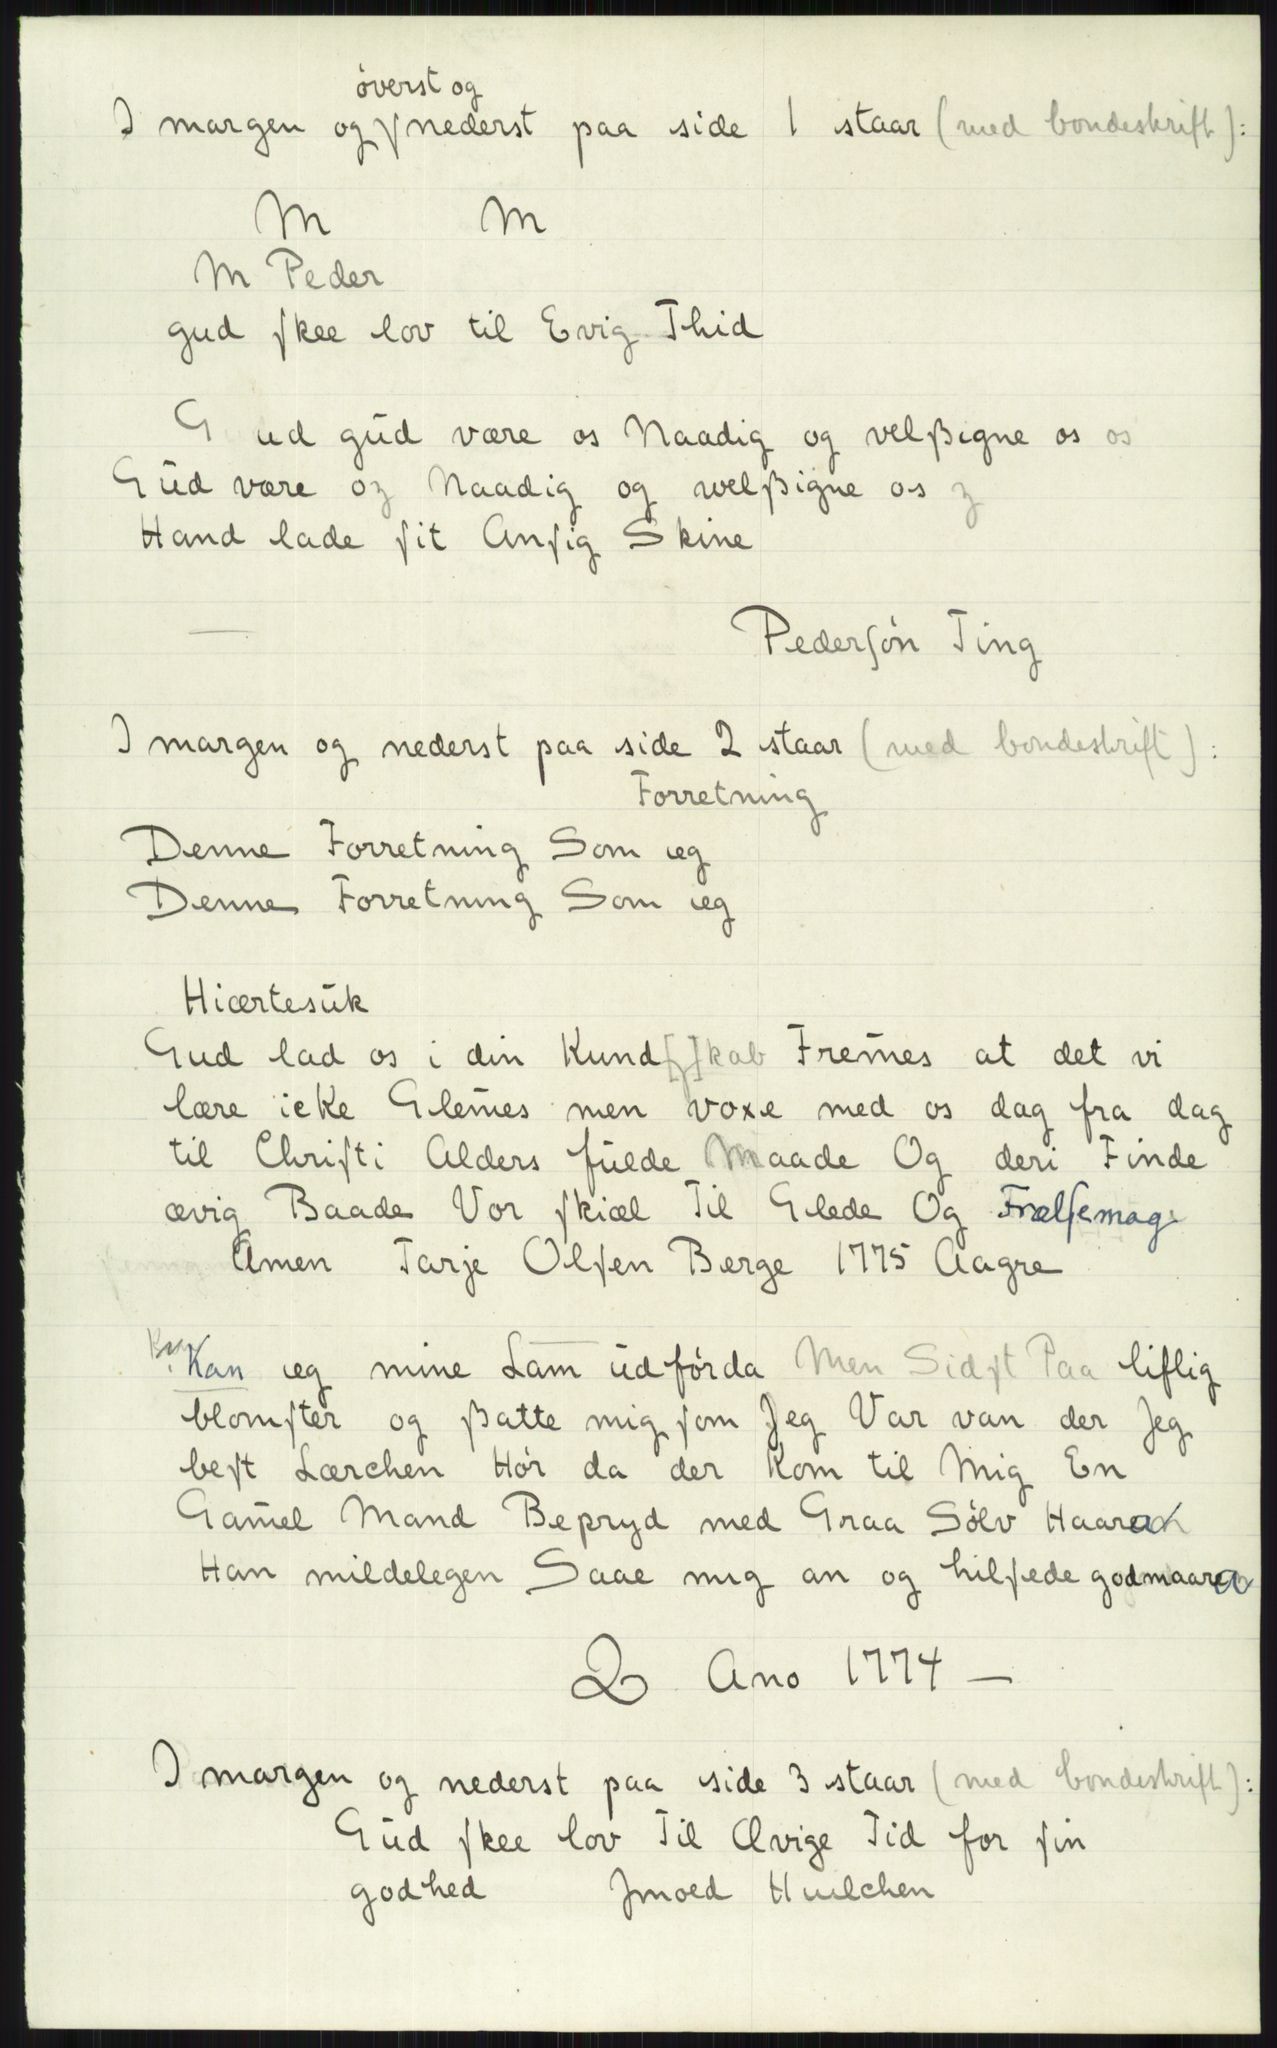 øverst og
I margen og nederst paa side 1 staar (med bondeskrift):
M M
M Peder
gud ſkee lov til Evig Thid
G ud gūd være os Naadig og velßigne os os
Gūd være oz Naadig og welßigne os z
Hand lade ſit Anſig Skine
Pederſøn Ting
I margen og nederst paa side 2 staar (med bondeskrift):
Forretning
Denne Forretning Som ieg
Denne Forretning Som ieg
Hiærtesūk
Gud lad os i din Kund[ſ]kab Frem̄es at det vi
lære icke Glem̄es men voxe med os dag fra dag
til Chriſti Alders fūlde Maade Og deri Finde
ævig Baade Vor ſkiæl Til Glede Og Frælſemag
Amen Tarje Olſen Berge 1775 Aagre
Kan ieg mine Lam ūdførda Men Sidſt Paa liflig
blomſter og ßatte mig ſom Jeg Var van der Jeg
beſt Lærchen Hør da der Kom til Mig En
Gam̄el Mand Bepryd med Graa Sølv Haar
Han mildelegen Saae mig an og hilſede godmaar
2 Ano 1774 —
I margen og nederst paa side 3 staar (med bondeskrift):
Gūd ſkee lov Til Ævige Tid for ſin
godhed Jmoed Huelchen